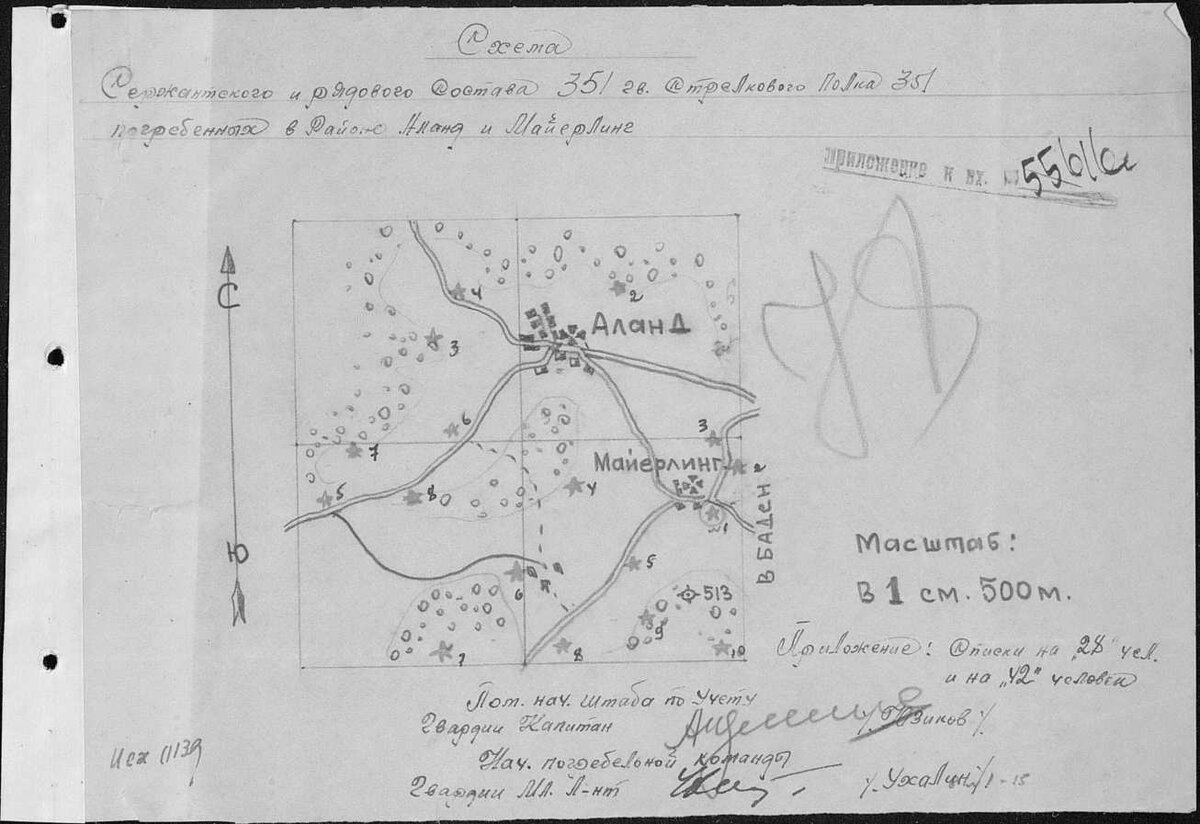 Схема
Сержантского и рядового Состава 351 гв. Стрелкового Полка 351
погребенных в Районе Аланд и Майерлинг
приложение к вх. №
С
4
2
Аланд
3
6
3
7
Майерлинг
5
8
4
2
1
В БАДЕН
Ю
5
6
513
9
7
8
10
Масштаб:
В 1 см. 500 м.
Приложение: Списки на "28" чел.
и на "42" человек
Пом. нач. штаба по Учету
Гвардии Капитан
Нач. погребельной команды
Гвардии Мл. Л-нт /Ухалин/
Исх